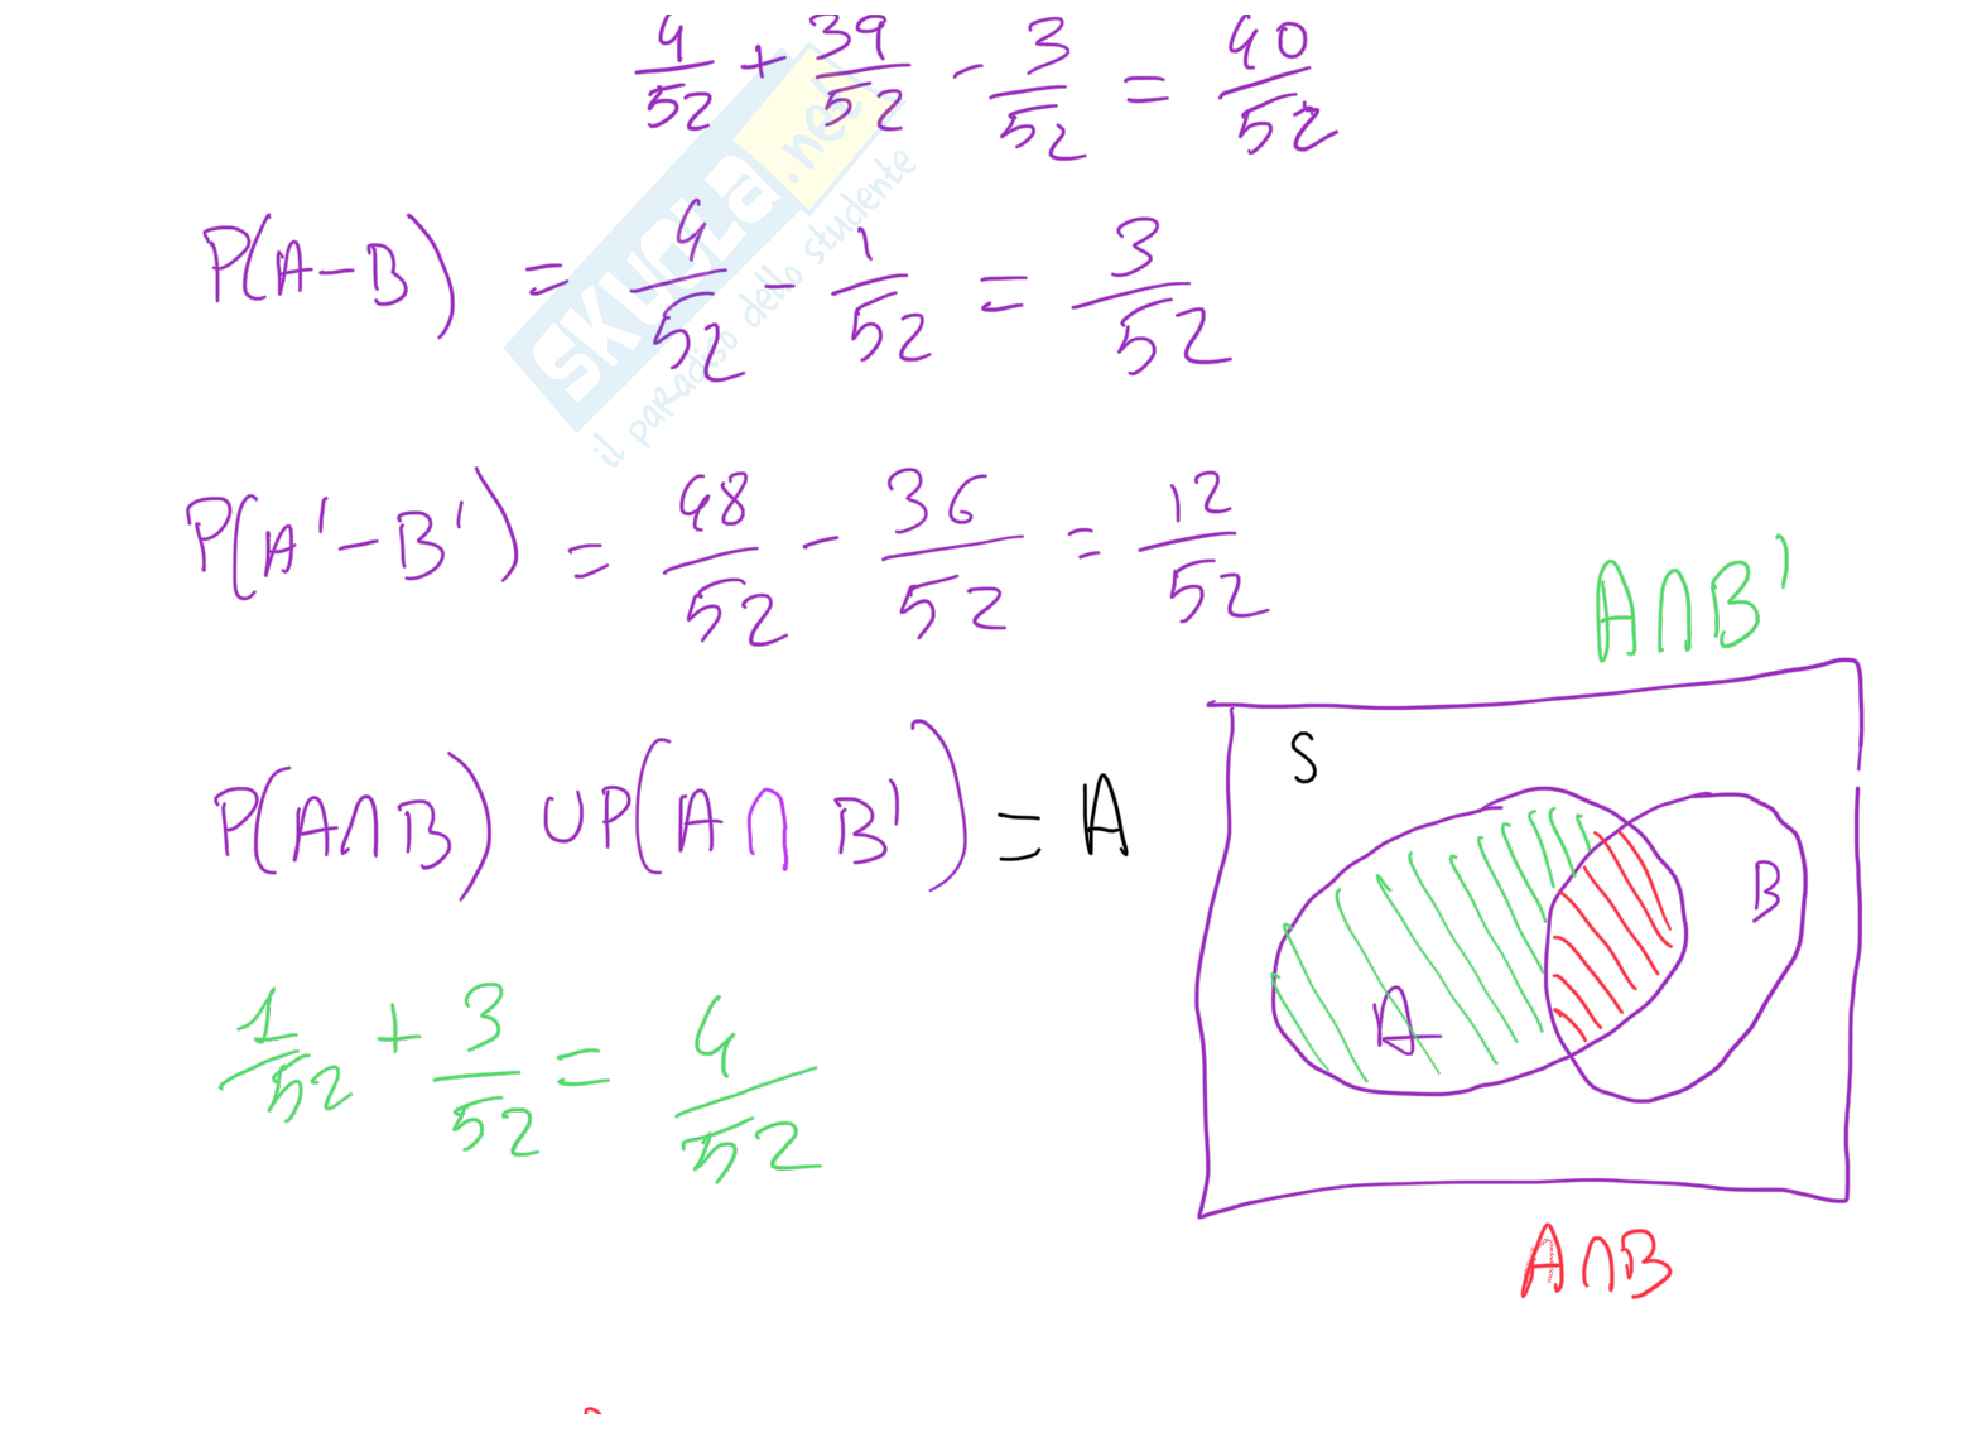 4/52 + 39/52 - 3/52 = 40/52
P(A-B) = 4/52 - 1/52 = 3/52
P(A'-B') = 48/52 - 36/52 = 12/52
A∩B'
S
P(A∩B) UP(A∩B') = A
B
A
1/52 + 3/52 = 4/52
A∩B
SKUOLa.net
il paradiso dello studente